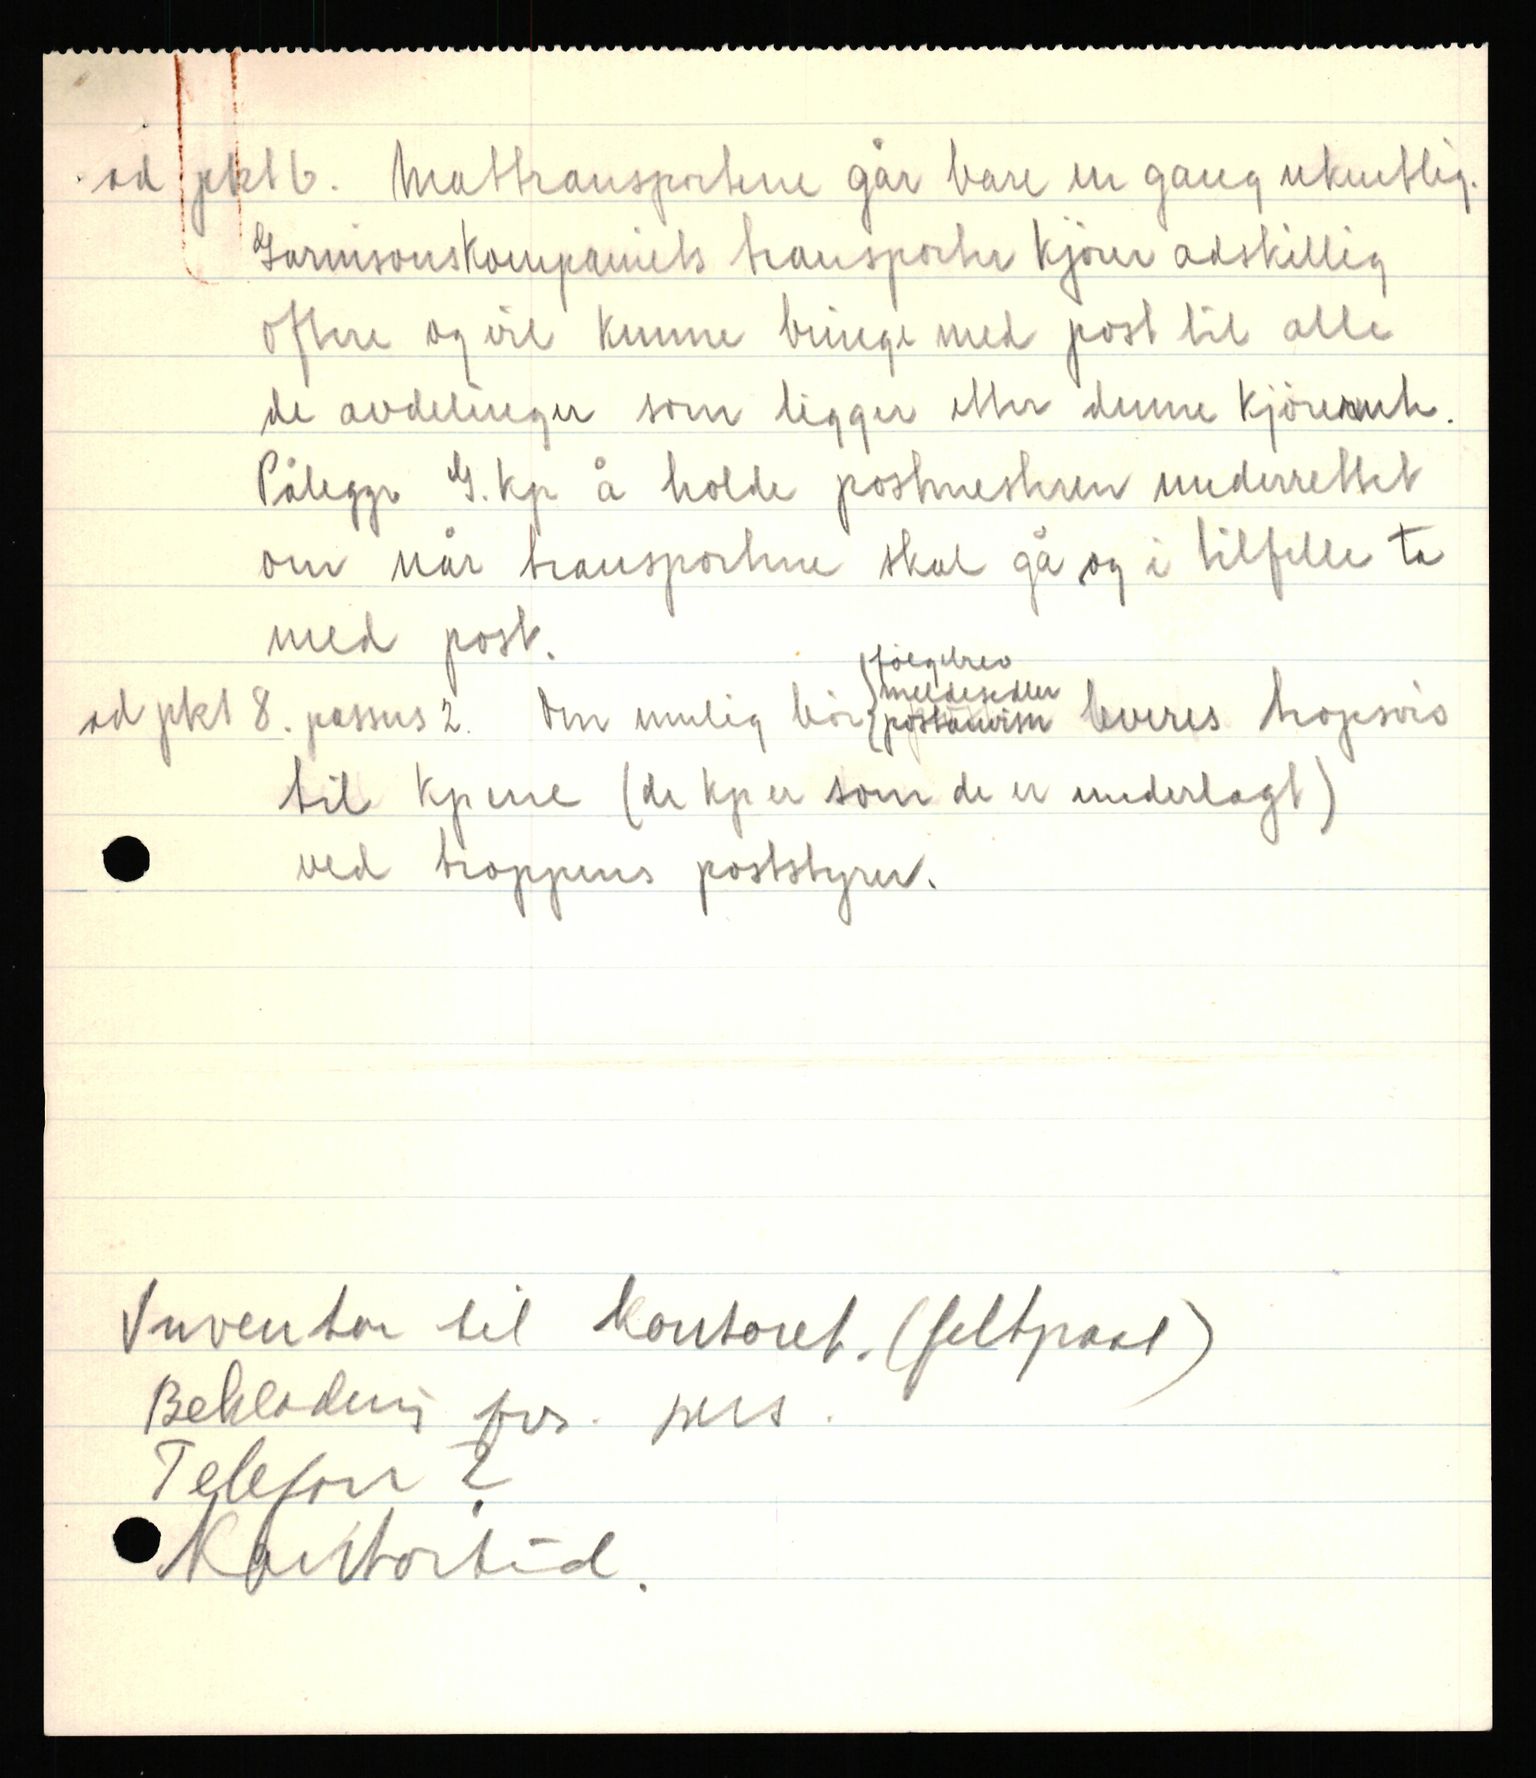 ad pkt 6. Mattransportene går bare en gang ukentlig.
Garnisonskompaniets transporter kjörer adskillig
oftere og vil kunne bringe med post til alle
de avdelinger som ligger etter denne kjörerute.
Pålegge G.kp å holde postmesteren underrettet
om når transportene skal gå og i tilfelle ta
med post.
ad pkt 8. passus 2. Om mulig bör { følgebrev
meldesedler
postanvisn leveres tropsvis
til kpene (de kp er som de er underlagt)
ved troppens poststyrer.
Inventar til kontoret. (feltpost)
Bekledning pers.
Telefon ?
Kontortid.